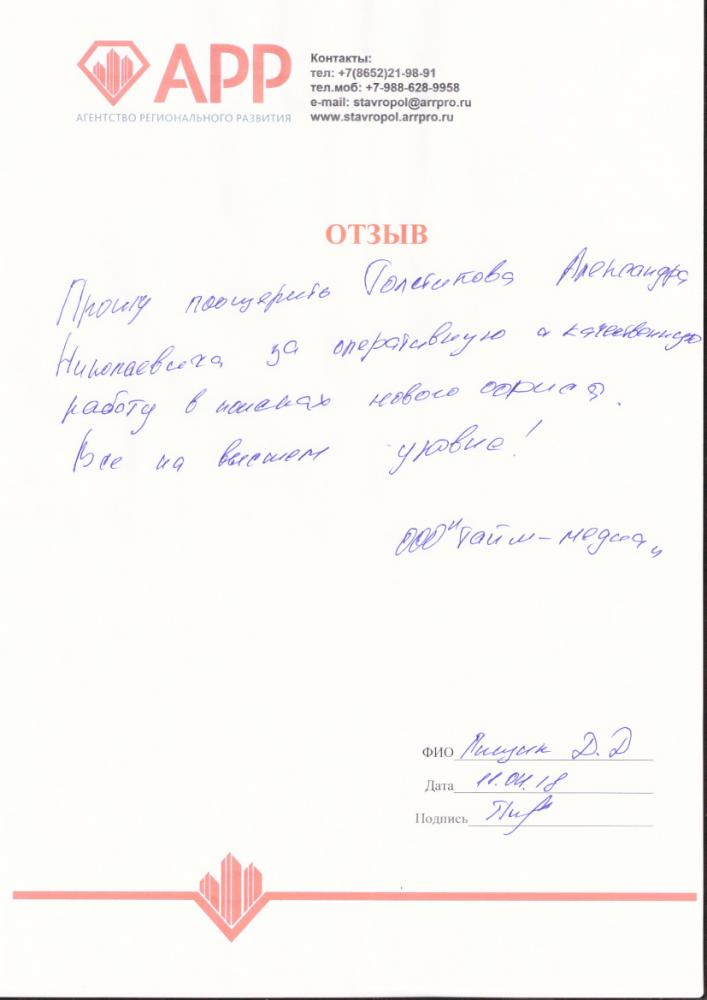 АРР
АГЕНТСТВО РЕГИОНАЛЬНОГО РАЗВИТИЯ
Контакты:
тел: +7(8652)21-98-91
тел.моб: +7-988-628-9958
e-mail: stavropol@arrpro.ru
www.stavropol.arrpro.ru
ОТЗЫВ
Прошу поощерить Толстикова Александра
Николаевича за оперативную и качественную
работу в поисках нового офиса.
Все на высшем уровне!
ООО "Тайм-медиа"
ФИО Пищик Д.Д
Дата 11.04.18
Подпись